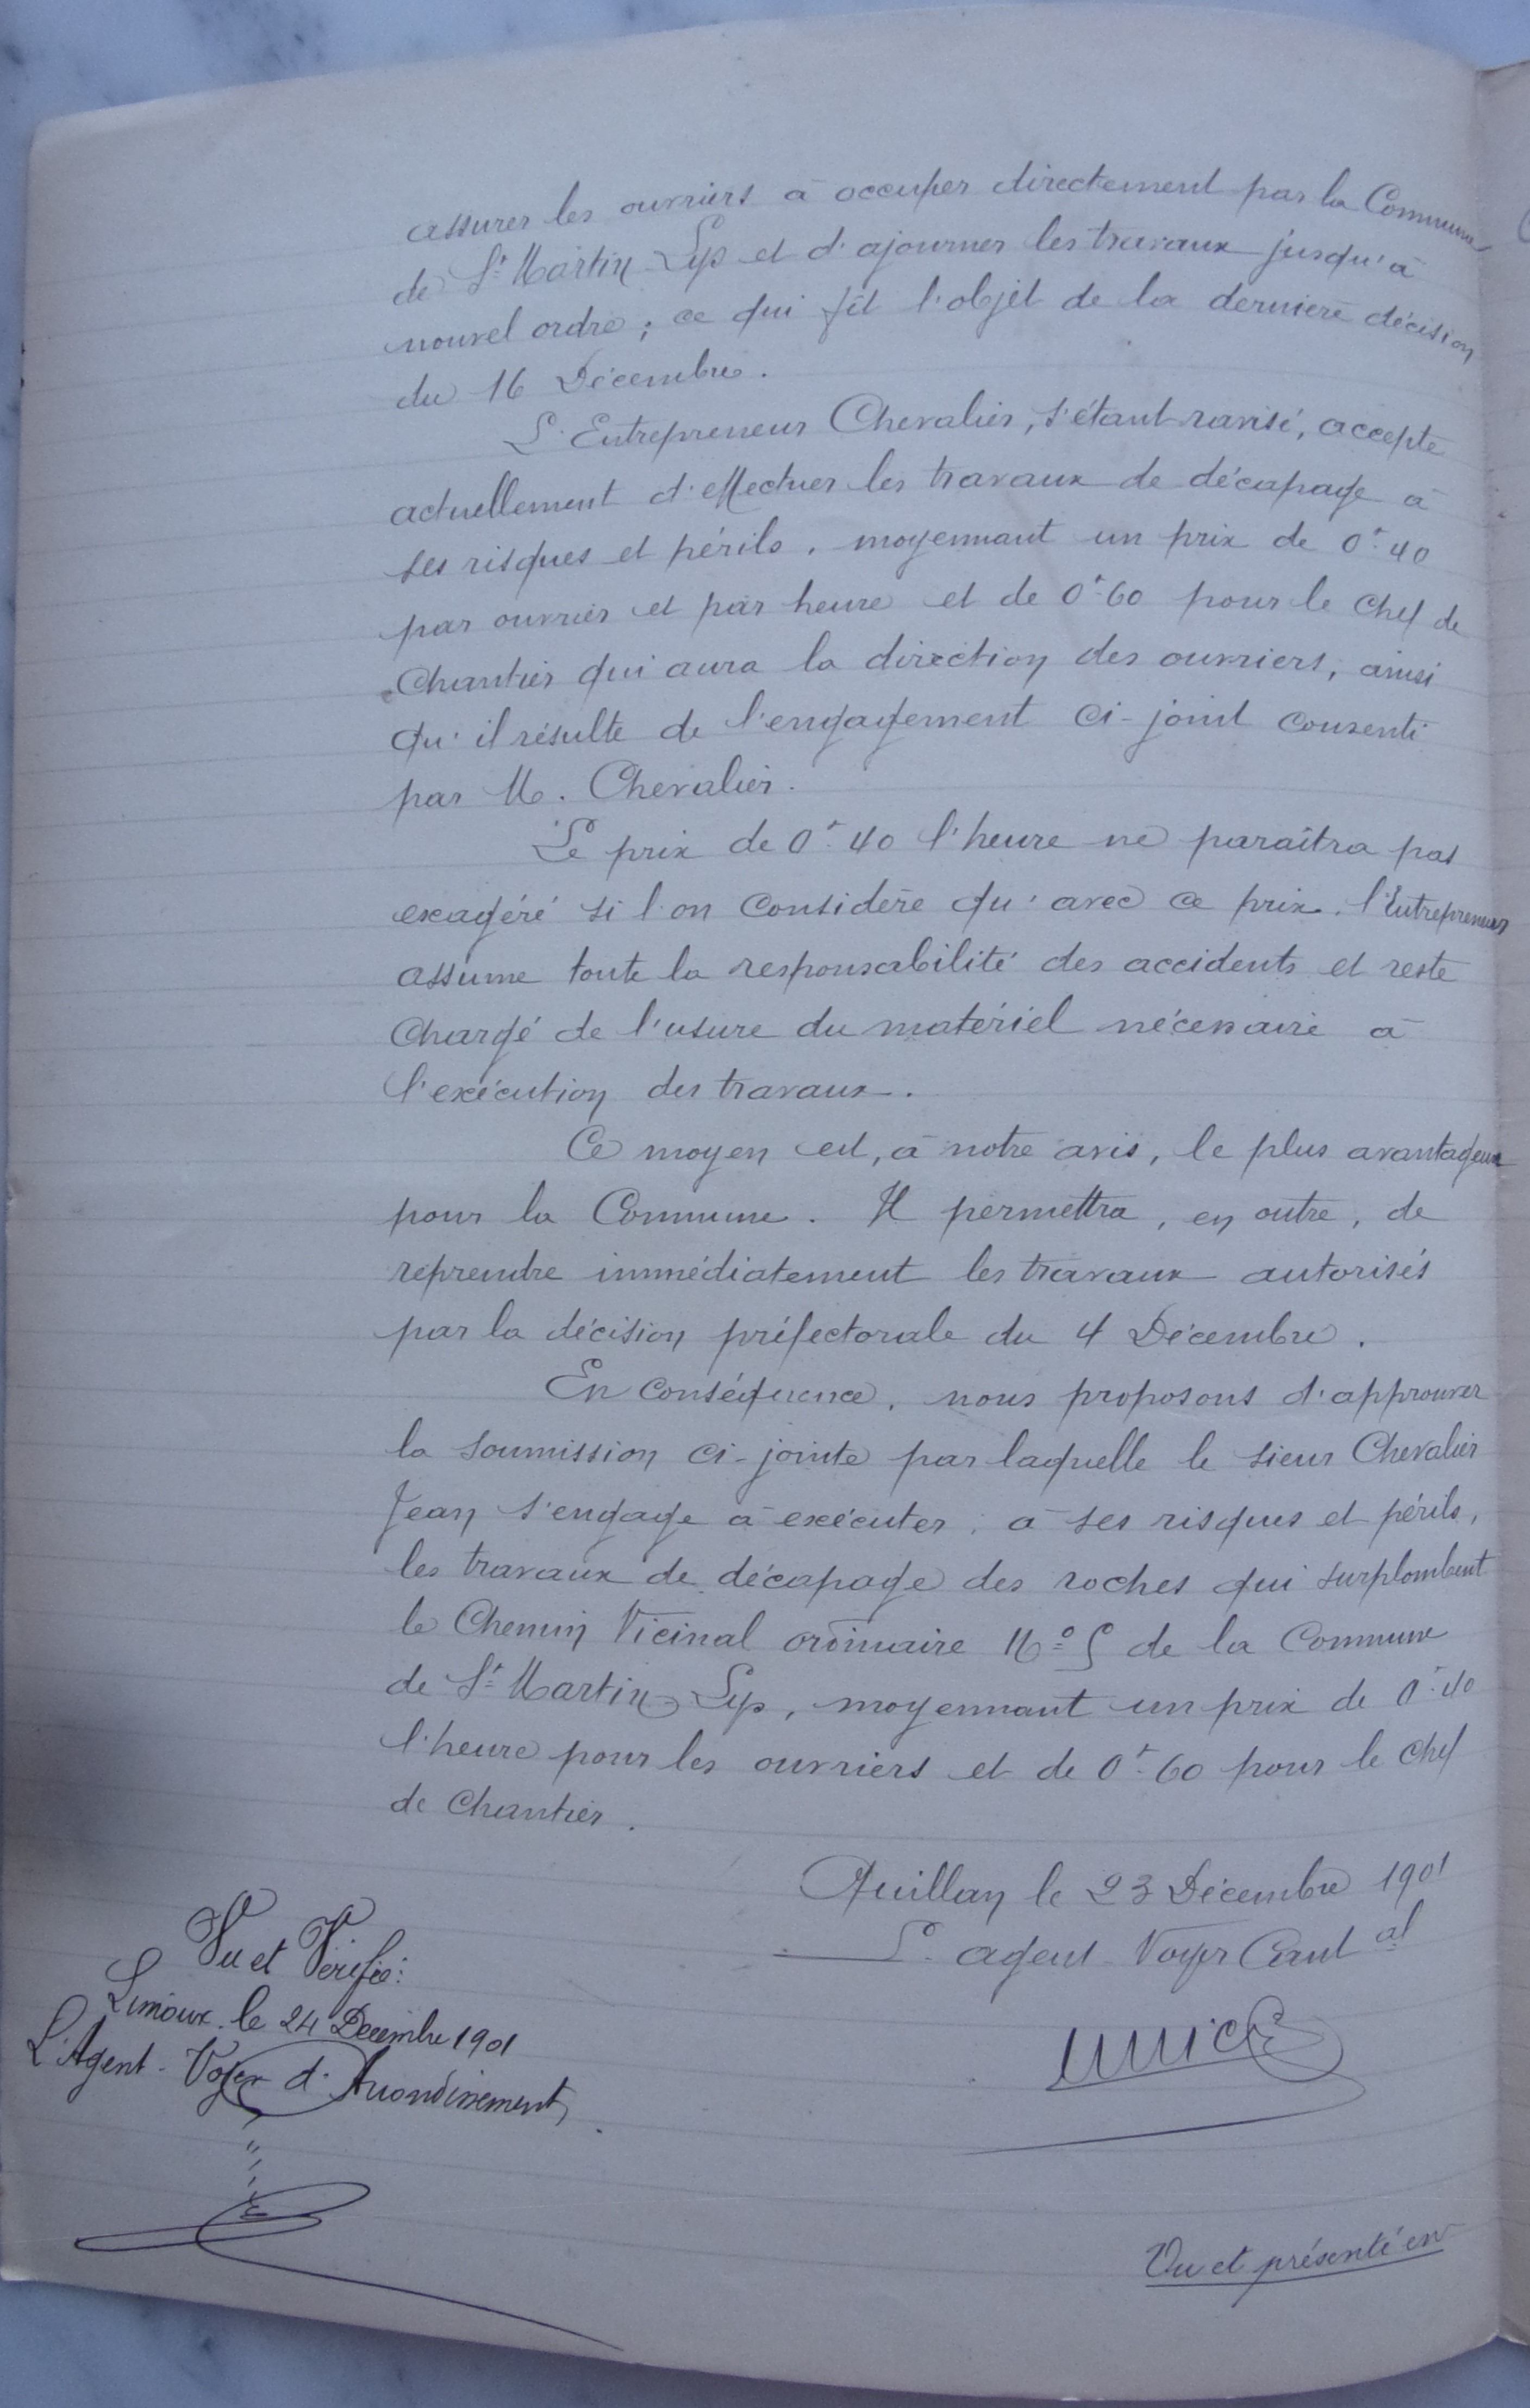 assurer les ouvriers à occuper directement par la Commune
de St Martin Lys et d'ajourner les travaux jusqu'à
nouvel ordre ; ce qui fit l'objet de la dernière décision
du 16 Décembre.
L'Entrepreneur Chevalier, s'étant ravisé, accepte
actuellement d'effectuer les travaux de décapage à
ses risques et périls, moyennant un prix de 0f.40
par ouvrier et par heure et de 0f.60 pour le chef de
Chantier qui aura la direction des ouvriers, ainsi
qu'il résulte de l'engagement ci-joint consenti
par M. Chevalier.
Le prix de 0f.40 l'heure ne paraîtra pas
exagéré si l'on considère qu'avec ce prix, l'Entrepreneur
assume toute la responsabilité des accidents et reste
chargé de l'usure du matériel nécessaire à
l'exécution des travaux.
Ce moyen est, à notre avis, le plus avantageux
pour la Commune. Il permettra, en outre, de
reprendre immédiatement les travaux autorisés
par la décision préfectorale du 4 Décembre.
En conséquence, nous proposons d'approuver
la soumission ci-jointe par laquelle le sieur Chevalier
Jean s'engage à exécuter, à ses risques et périls,
les travaux de décapage des roches qui surplombent
le Chemin Vicinal ordinaire No 5 de la Commune
de St Martin Lys, moyennant un prix de 0f.40
l'heure pour les ouvriers et de 0f.60 pour le chef
de chantier.
Quillan le 23 Décembre 1901
L'agent-Voyer Cantal
Vu et Vérifié :
Limoux, le 24 Décembre 1901
L'Agent-Voyer d'Arrondissement,
Vu et présenté en